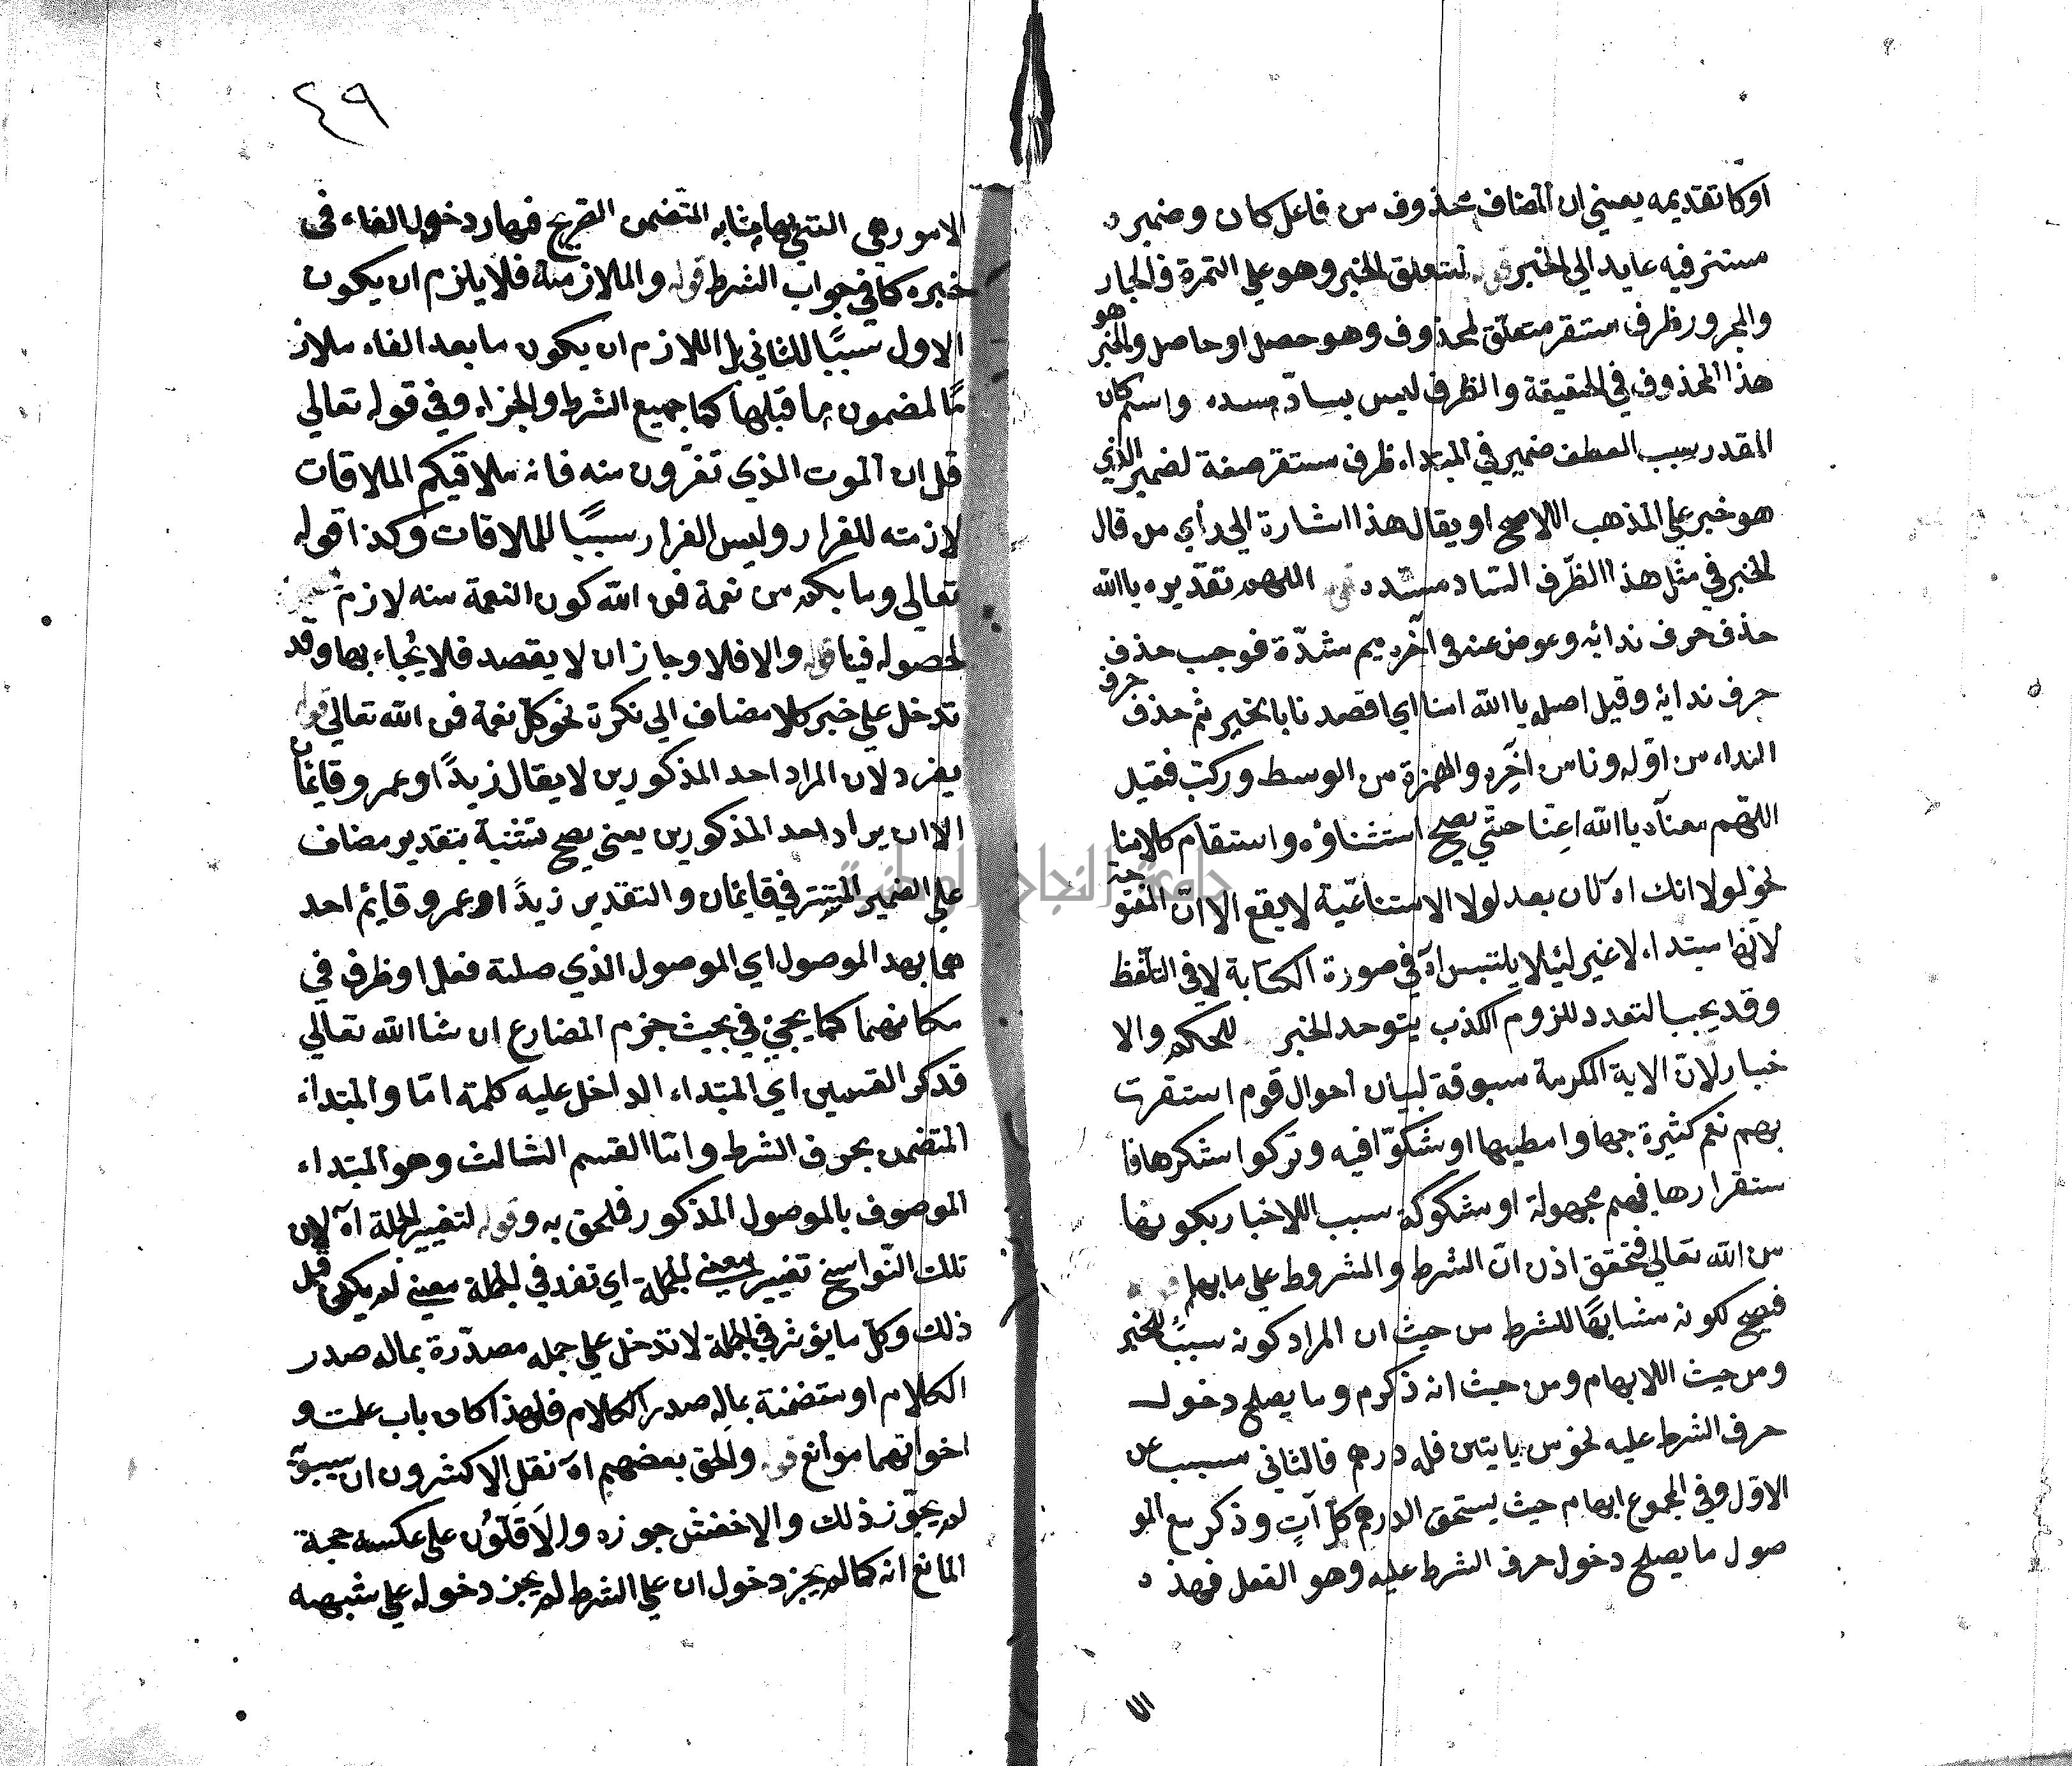 اوكا تقديمه يعني ان المضاف محذوف من فاعل كان وضميره
مستتر فيه عايد الي الخبر قوله لمتعلق الخبر وهو علي التمرة فالجار
والمجرور ظرف مستقر متعلق لمحذوف وهو حصل او حاصل والخبر هو
هذا المحذوف في الحقيقة والظرف ليس بسادّ مسده واسم كان
المقدر سبب العطف ضمير في المبتداء ظرف مستقر صفة لضمير الذي
هو خبر علي المذهب اللاصح او يقال هذا اشارة الي رأي من قال
الخبر في مثل هذا الظّرف السّاد مسّدد اللهم تقديره يا الله
حذف حرف ندائه وعوض عنه في آخره ميم شدّة فوجب حذف
حرف ندايه وقيل اصله يا الله امنا اي اقصدنا بالخير ثم حذف حرف
النداء من اوّله ونا من آخره والهمزة من الوسط وركبّ فقيل
اللهّم معناه يا الله اعِنّا حتّي يصح استثناؤه واستقام كلامنا
نحو لولا انك اه لان بعد لولا الاستناعّية لا يقع الا انّ المفتو حة
لانّها مبتداء لا غير لئيلا يلتبس اه في صورة الكتابة لا في التلّفظ
وقد يجب التعدد للزوم الكذب بتوحد الخبر للحكم والا
خبار لانّ الاية الكرمة سبوقة لبيان احوال قوم استقرت
بهم نعم كثيرة جهلوا مطيها او شكوّا فيه وتركوا شكرها فا
ستقرارها فهم مجهولة او شكوكة سبب اللاخبار بكونها
من الله تعالي فتحقق اذن انّ الشرط والمشروط علي ما بهما
فصح لكونه مشابهًا للشرط من حيث ان المراد كونه سببًا للخبر
ومن حيث اللابهام ومن حيث انه ذكرم وما يصلح دخول
حرف الشرط عليه نحو من يايتن فله درهم فالثاني سبب عن
الاوّل وفي المجموع ابهام حيث يستحق الدرهم كل آتٍ وذكر مع المو
صول ما يصلح دخول حرف الشرط عليه وهو الفعل فهذه
ااا
٤٩
الامور هي التي بها مثابه المتضمن الصريح فصار دخول الفاء في
خبره كما في جواب الشرط قوله والملازمة فلا يلزم ان يكون
الاول سببًا للثاني بل اللازم ان يكون ما بعد الفاء ملاز
مًا لمضمون ما قبلها كما جميع الشرط والجزاء وفي قوله تعالي
قل ان الموت الذي تفرّون منه فانه ملاقيكم الملاقات
لازمته للفرار وليس الفرار سببًا للملاقات وكذا قوله
تعالي وما بكم من نعمة فمن الله كون النعمة منه لازم
لحصوله فينا قوله والا فلا وجاز ان لا يقصد فلا يُجاء بها وقد
تدخل علي خبر كلا مضاف الي نكرة نحو كلّ نعمة فمن الله تعالي قوله
يفرد لان المراد احد المذكورين لا يقال زيدًا او عمرو قايمان
الا ان يراد احد المذكورين يعني يصح تثنية بتقدير مضاف
علي الضمير المستتر في قايمان والتقدير زيدًا او عمرو قايم احد
هما بهد الموصول اي الموصول الذي صلته فعل او ظرف في
مكانهما كما يجئ في بحيث جزم المضارع ان شا الله تعالي
قد كر القسمين اي المبتداء الداخل عليه كلمة امّا والمبتداء
المتضمن بحرف الشرط وامّا القسم الثالث وهو المبتداء
الموصوف بالموصول المذكور فلحق به وقوله لتغيير الجملة اه لان
تلك النّواسخ تغيير معني الجملة اي تفد في الجملة معني لم يكن قبل
ذلك وكلّ ما يؤثر في الجملة لا تدخل علي جمله مصدّرة بماله صدر
الكلام او متضمنة بماله صدر الكلام فلهذا كان باب علمت و
اخواتهما موانع قوله والحق بعضهم اه نقل الاكثرون ان سيبوّيه
لم يجوّز ذلك والاخفش جوزه والاَقَلّوُن علي عكسه حجة
المانع انه كما لم يجز دخول ان علي الشرط لم يجز دخوله علي شبهه
جامعة النجاح الوطنية